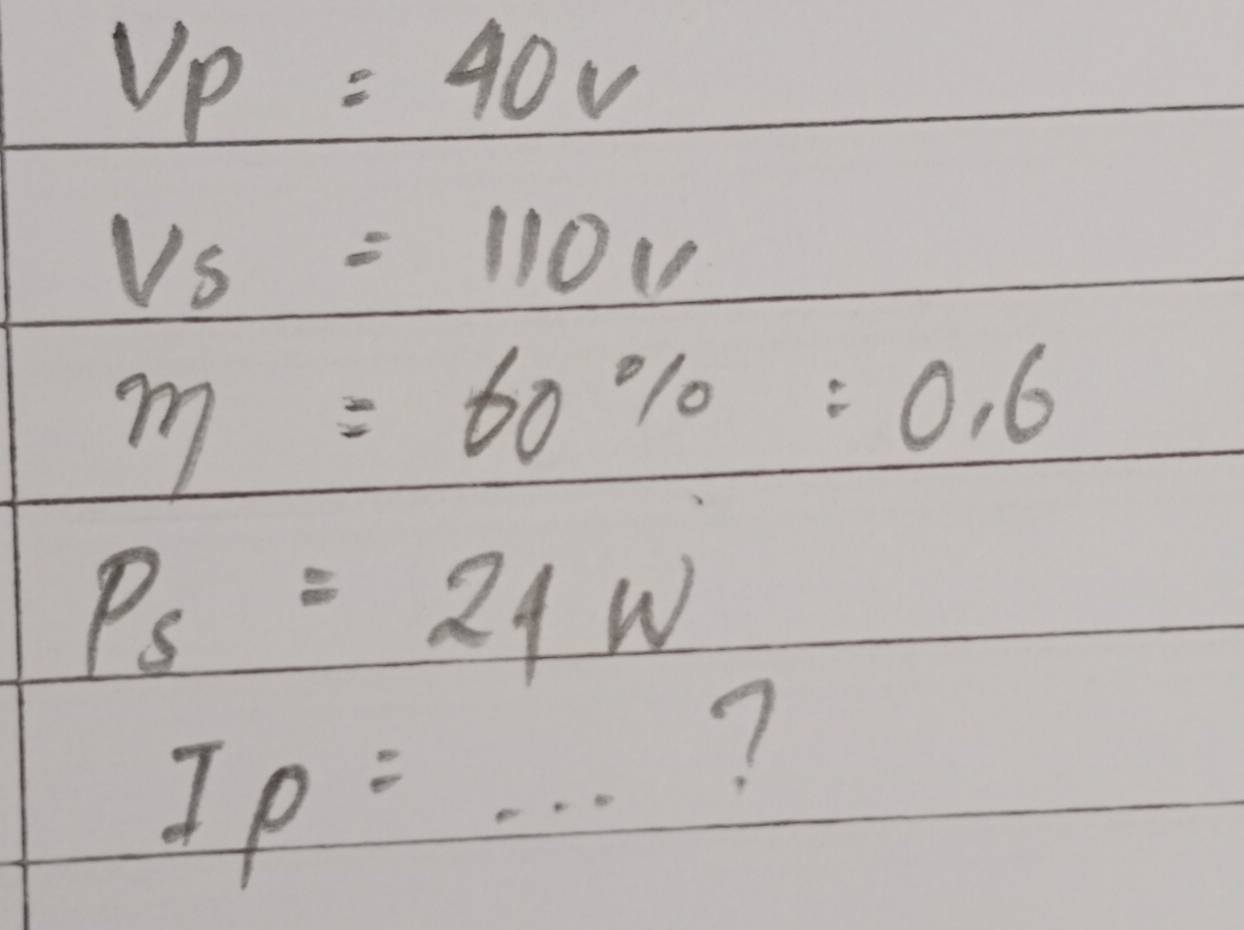 Vp = 40 v
Vs = 110 v
η = 60 % = 0,6
Ps = 24 W
Ip = ... ?